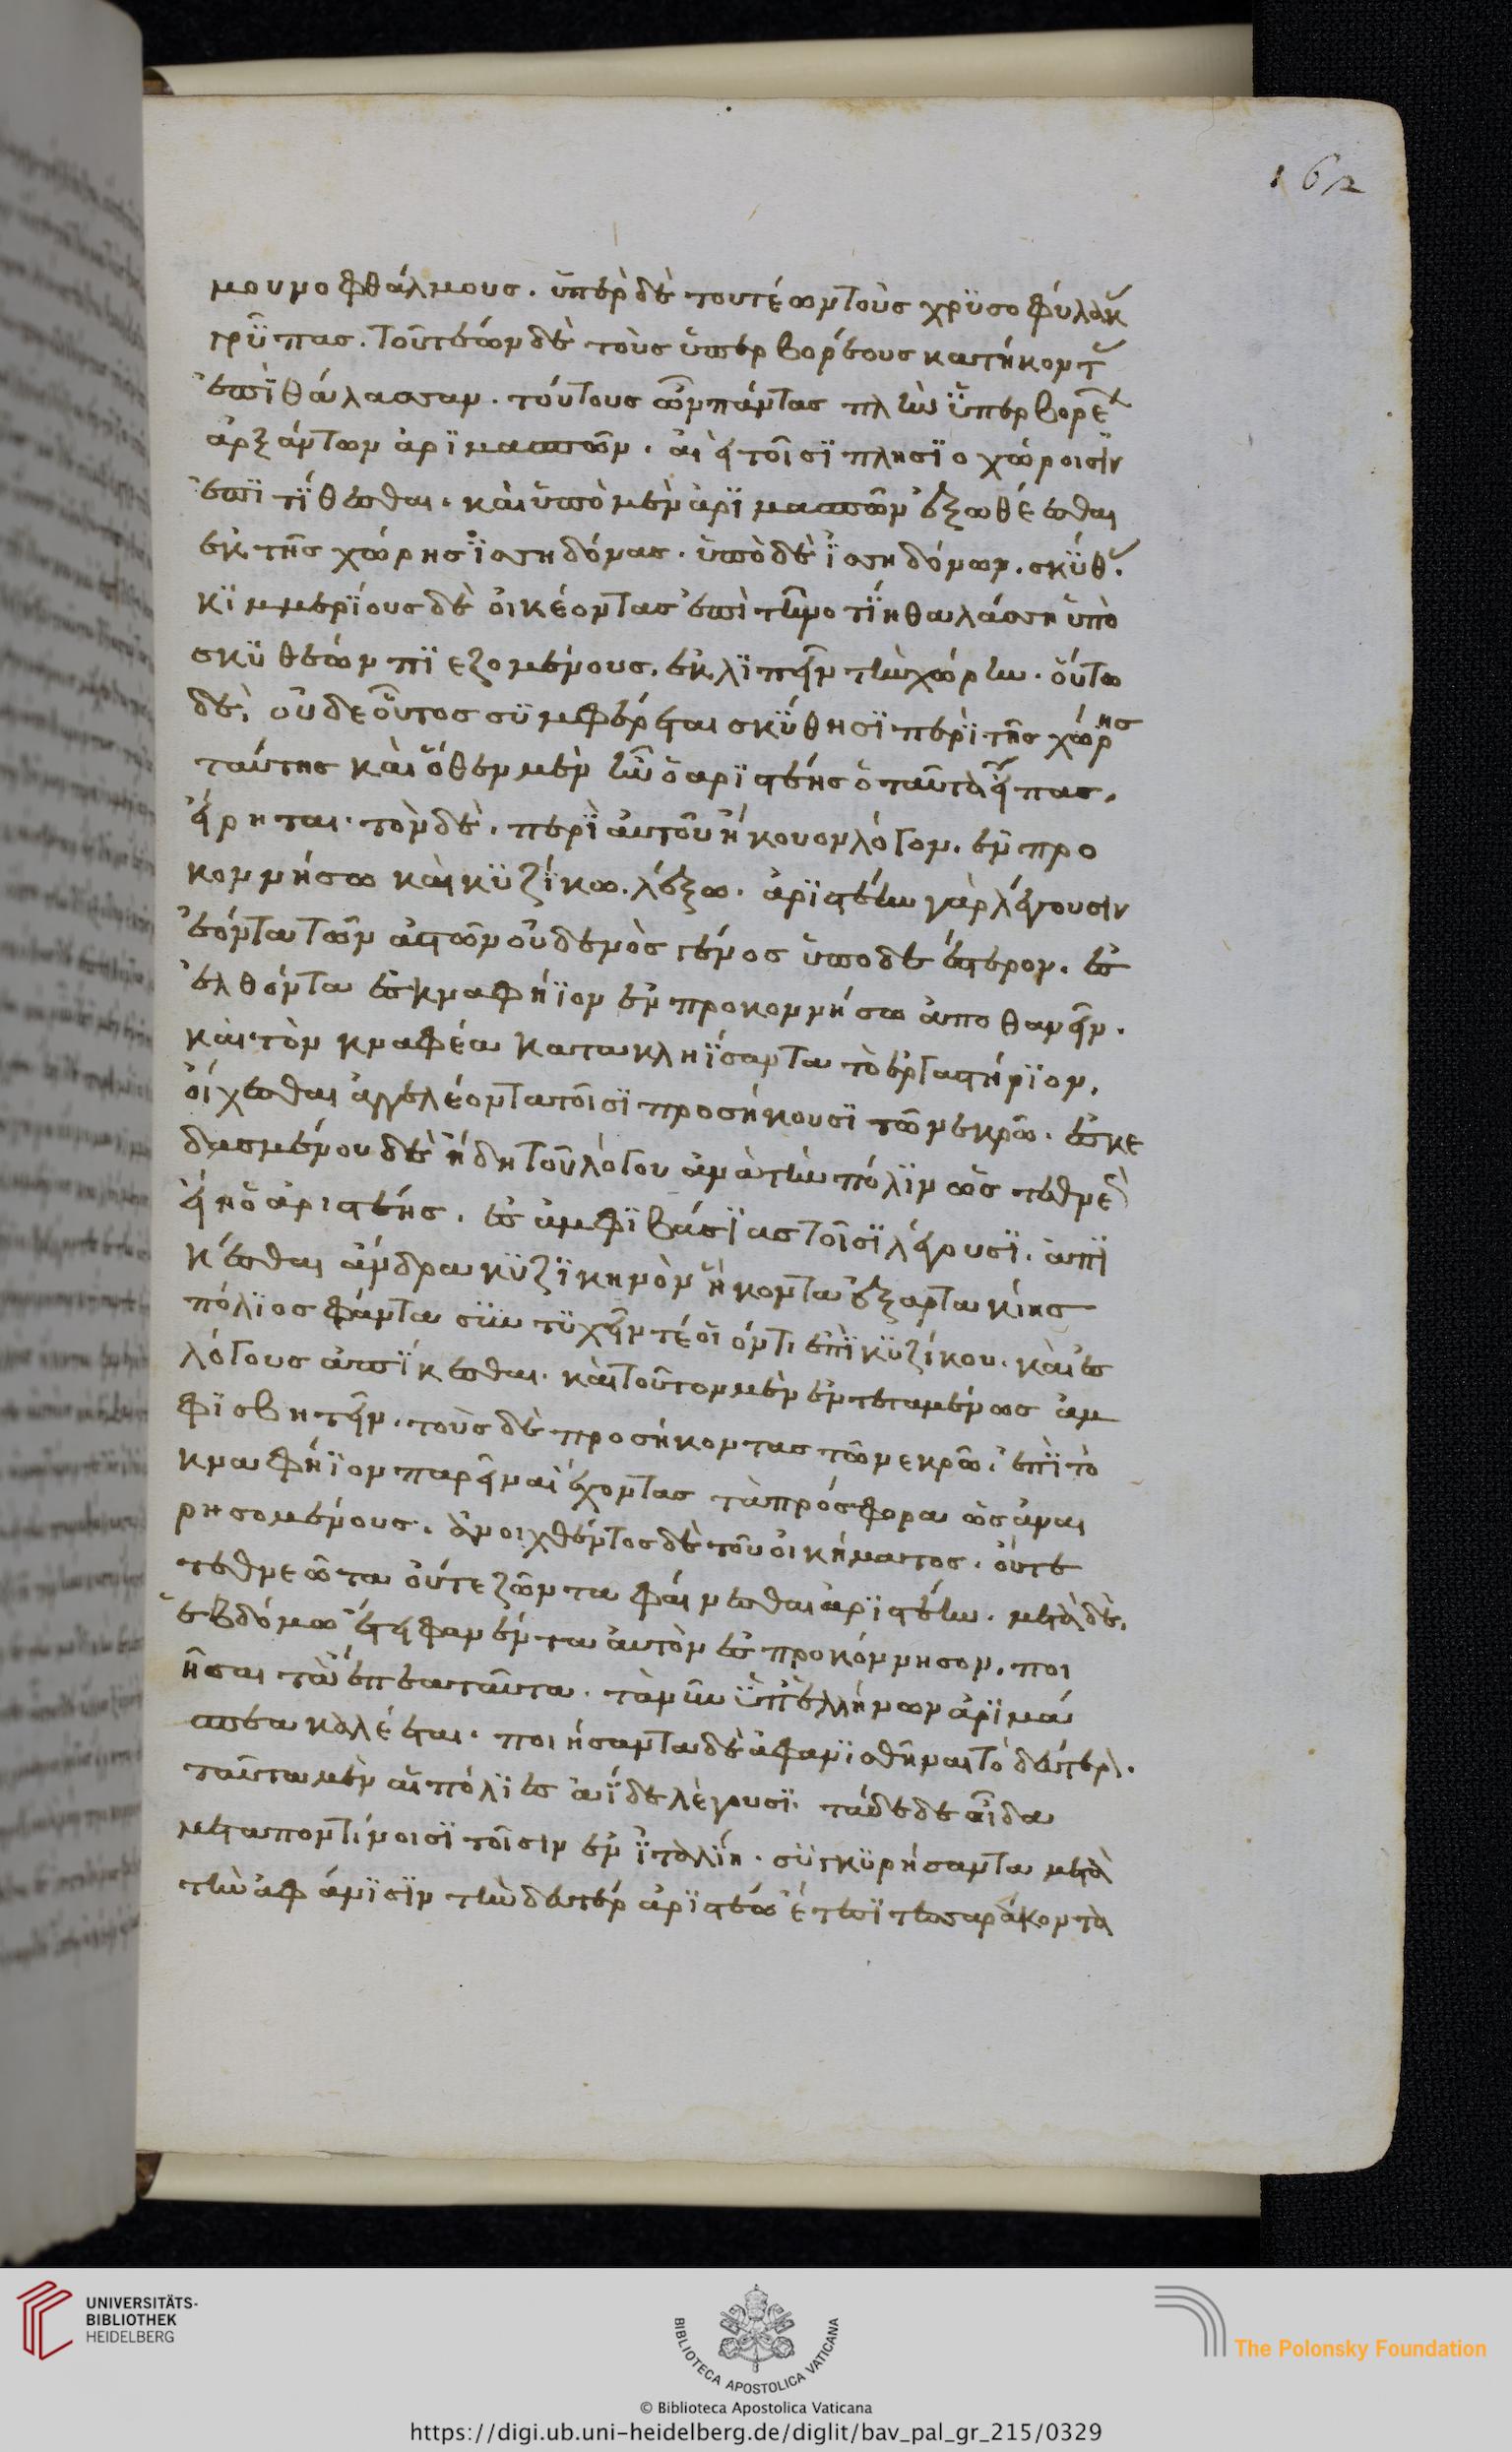 162
μουνοφθάλμους. ὑπὲρ δὲ τουτέων τοὺς χρυσοφύλακ
γρῦπας. τουτεών δὲ τοὺς ὑπερβορέους κατήκοντ
ἐπὶ θάλασσαν. τούτους ὦν πάντας πλὴν ὑπερβορέ
ἀρξάντων ἀριμασπῶν. αἰεὶ τοῖσι πλησιοχώροισιν
ἐπιτίθεσθαι. καὶ ὑπὸ μὲν ἀριμασπῶν ἐξωθέεσθαι
ἐκ τῆς χώρης ἰσηδόνας. ὑπὸ δὲ ἰσηδόνων. σκύθ.
κιμμερίους δὲ οἰκέοντας ἐπὶ τῆ νοτίη θαλάσση ὑπὸ
σκυθεών πιεζομένους. ἐκλιπεῖν τὴν χώρην. οὕτω
δὲ, οὐδε οὗτος συμφέρεται σκύθησι περὶ τῆς χώρης
ταύτης καὶ ὅθεν μὲν ἦν ὁ ἀριστέης ὁ ταῦτα εἴπας.
εἴρηται. τὸν δὲ. περὶ αὐτοῦ ἤκουον λόγον. ἐν προ
κοννήσω καὶ κυζίκω. λέξω. ἀριστέην γὰρ λέγουσιν
ἐόντα τῶν ἀστῶν οὐδενὸς γένος ὑποδεέστερον. ἐσ
ελθόντα ἐς κναφήϊον ἐν προκοννήσω ἀποθανεῖν.
καὶ τὸν κναφέα κατακληίσαντα τὸ ἐργαστήριον.
οἴχεσθαι ἀγγελέοντα τοῖσι προσήκουσι τῶ νεκρῶ. ἐσκε
δασμένου δὲ ἤδη τοῦ λόγου ἀνὰ τὴν πόλιν ὡς τεθνε
είη ὁ ἀριστέης. ἐς ἀμφιβασίας τοῖσι λέγουσι. ἀπι
κέσθαι ἄνδρα κυζικηνὸν ἥκοντα ἐξ αρτακίης
πόλιος φάντα συντυχεῖν τέ οἱ ἰόντι ἐπὶ κυζίκου. καὶ ἐς
λόγους ἀπικέσθαι. καὶ τοῦτον μὲν ἐντεταμένως ἀμ
φισβητεῖν. τοὺς δὲ προσήκοντας τῶ νεκρῶ. ἐπὶ τὸ
κναφήϊον παρεῖναι ἔχοντας τὰ πρόσφορα ὡς ἀναι
ρησομένους. ἀνοιχθέντος δὲ τοῦ οἰκήματος. οὔτε
τεθνεῶτα οὔτε ζῶντα φαίνεσθαι ἀριστέην. μετὰ δὲ.
ἑβδόμω ἔτει φανέντα αὐτὸν ἐς προκόννησον. ποι
ῆσαι τὰ ἔπεα ταῦτα. τὰ νῦν ὑπ' ἑλλήνων ἀριμά
σπεα καλέεται. ποιήσαντα δὲ ἀφανισθῆναι τὸ δεύτερ.
ταῦτα μὲν αἱ πόλιες αἵδε λέγουσι. τάδε δε οἶδα
μεταποντίνοισι τοῖσιν ἐν ἰταλίη. συγκυρήσαντα μετὰ
τὴν ἀφάνισιν τὴν δευτέρ ἀριστέω ἔτεσι τεσσαράκοντα
UNIVERSITÄTS-
BIBLIOTHEK
HEIDELBERG
BIBLIOTECA APOSTOLICA VATICANA
The Polonsky Foundation
© Biblioteca Apostolica Vaticana
https://digi.ub.uni-heidelberg.de/diglit/bav_pal_gr_215/0329